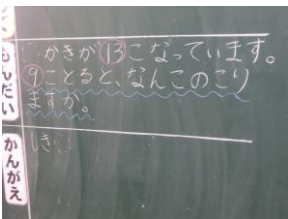 もんだい
かきが⑬こなっています。
⑨ことると、なんこのこり
ますか。
かんがえ
しき